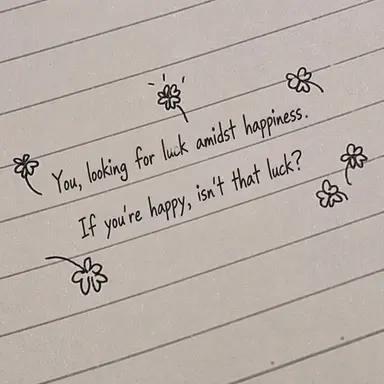 You, looking for luck amidst happiness.
If you're happy, isn't that luck?